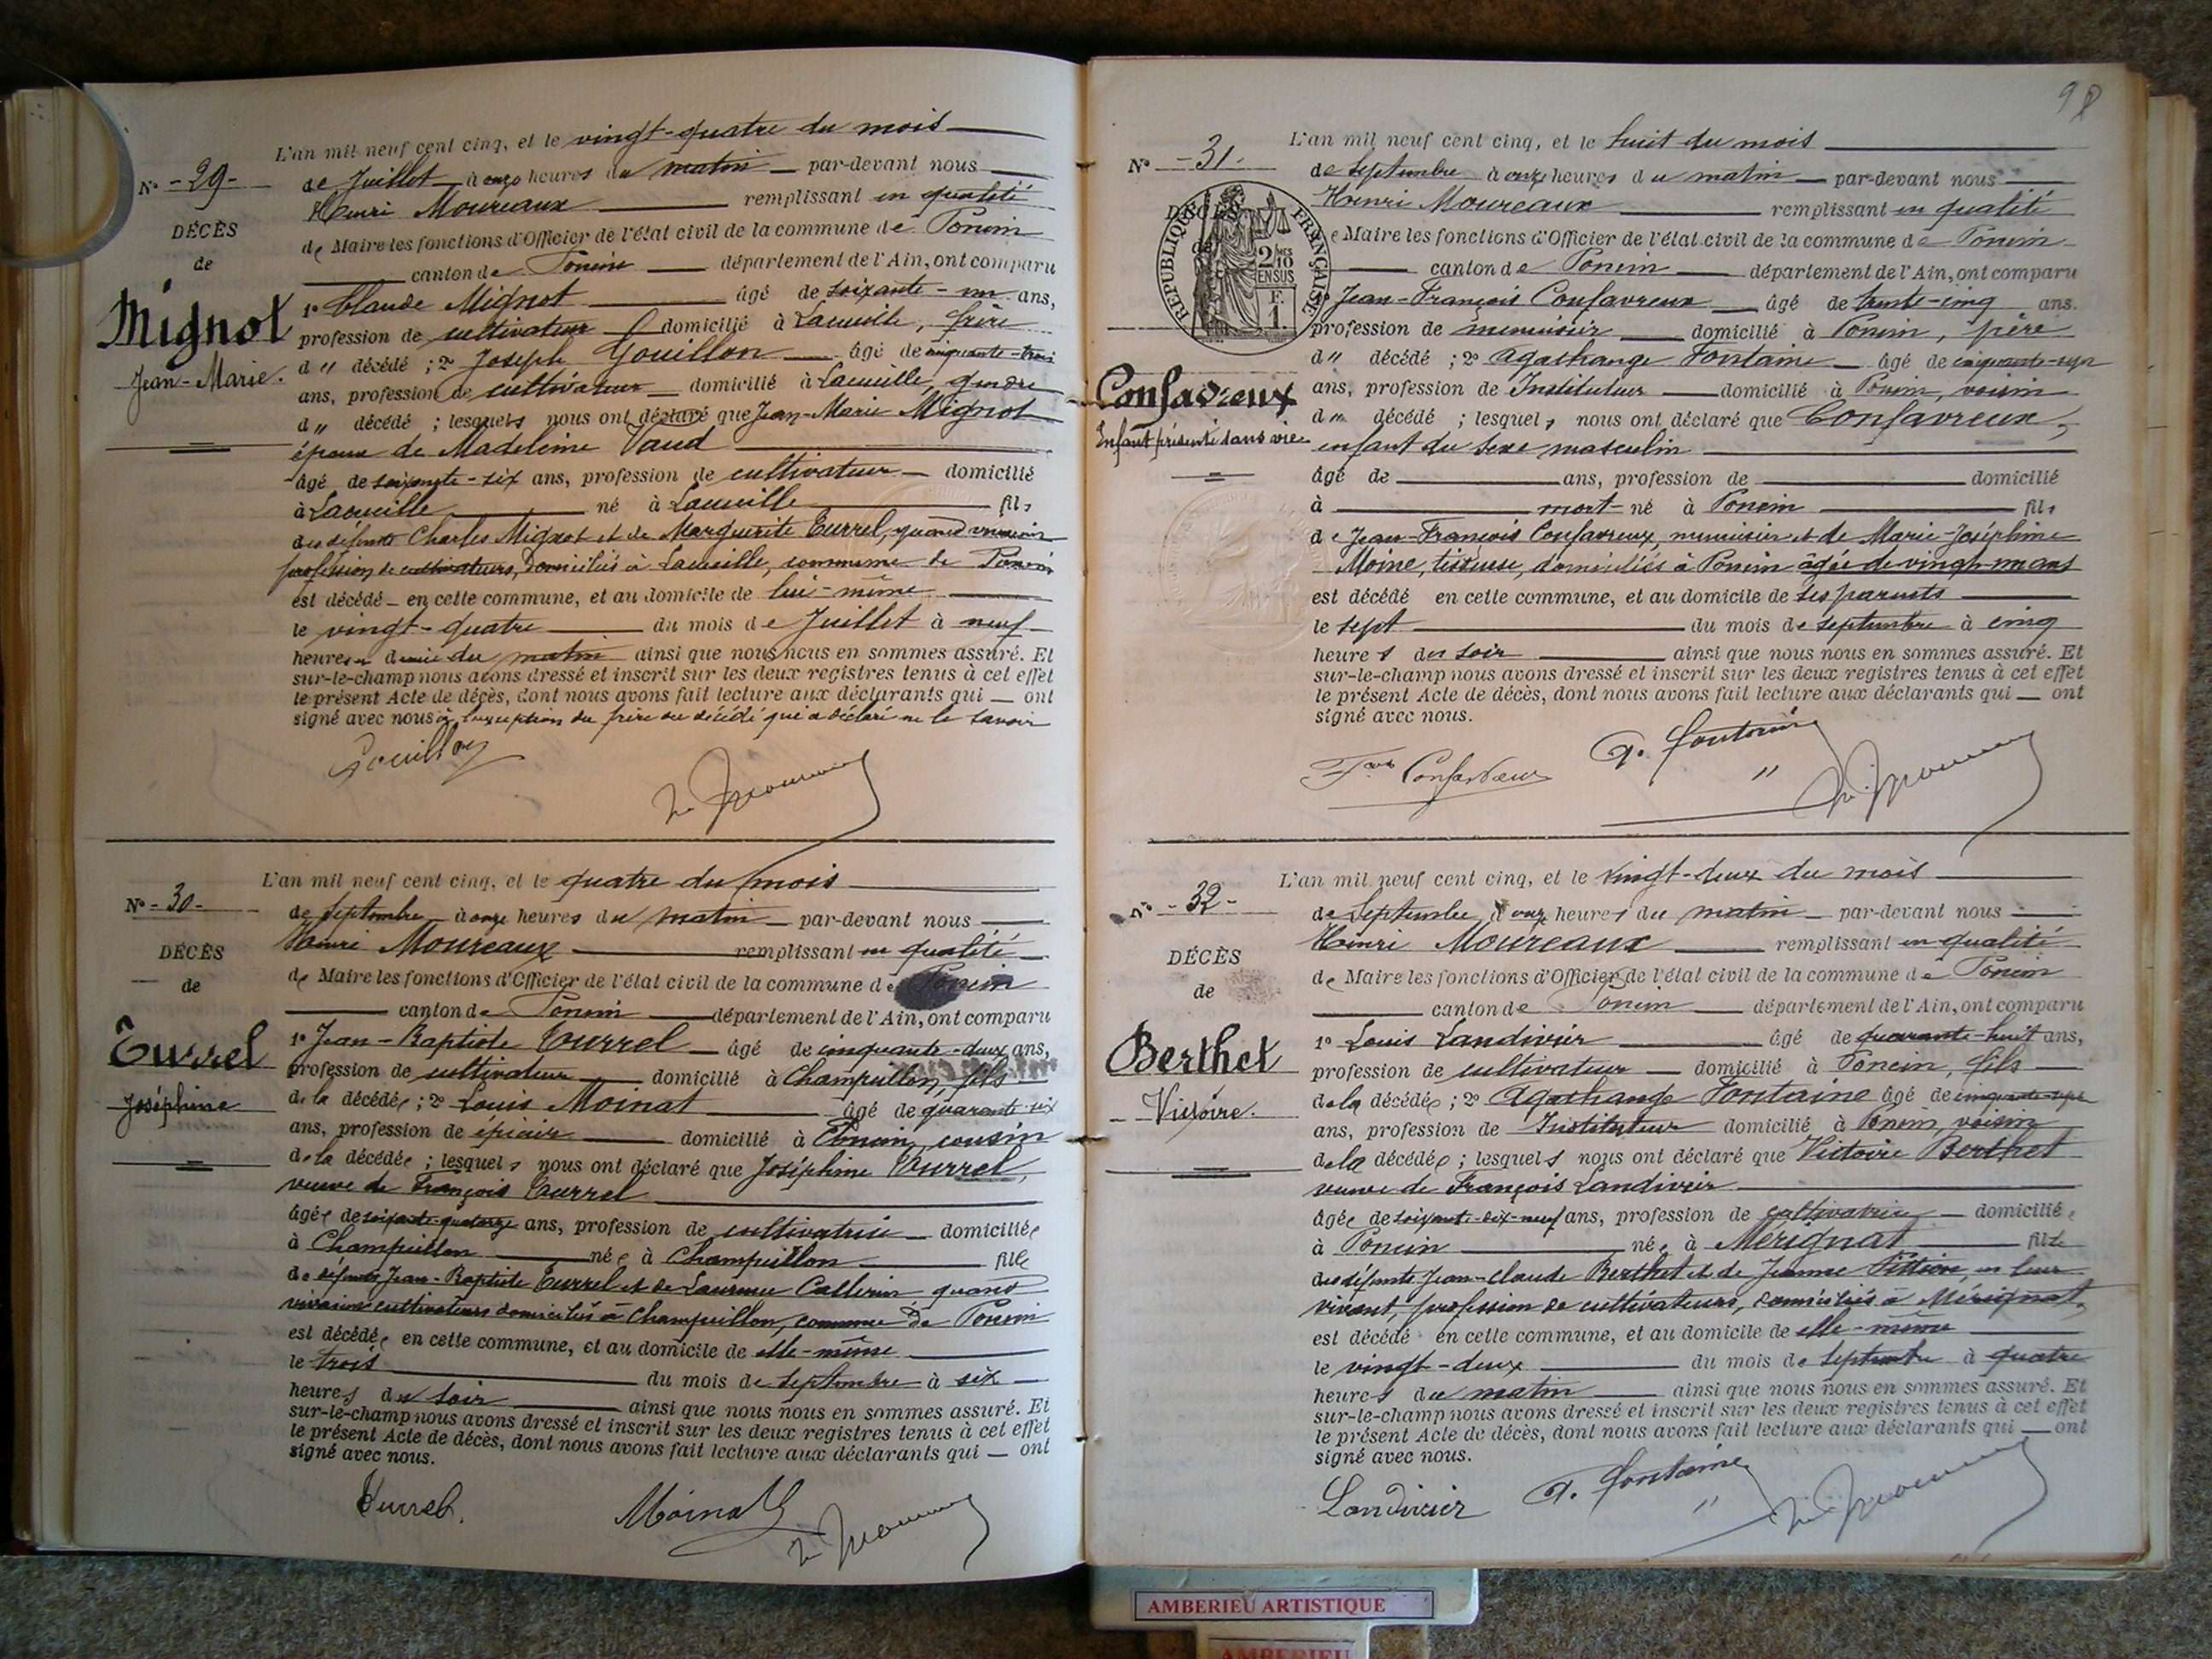 L'an mil neuf cent cinq, et le vingt-quatre du mois
N° - 29 - de Juillet à onze heures du matin par-devant nous
Henri Moureaux remplissant en qualité
DÉCÈS de Maire les fonctions d'Officier de l'état civil de la commune de Poncin
de canton de Poncin département de l'Ain, ont comparu
Mignot 1° Claude Mignot âgé de soixante-un ans,
profession de cultivateur domicilié à Lacueille, frère
Jean-Marie. d" décédé ; 2° Joseph Gouillon âgé de cinquante-trois
ans, profession de cultivateur domicilié à Lacueille, gendre
d" décédé ; lesquels nous ont déclaré que Jean-Marie Mignot
époux de Madeleine Vaud
âgé de soixante-six ans, profession de cultivateur domicilié
à Lacueille né à Lacueille fils
des défunts Charles Mignot et de Marguerite Eurrel, quand
profession de cultivateurs, domiciliés à Lacueille, commune de Poncin
est décédé en cette commune, et au domicile de lui-même
le vingt-quatre du mois de Juillet à neuf
heures et demie du matin ainsi que nous nous en sommes assuré. Et
sur-le-champ nous avons dressé et inscrit sur les deux registres tenus à cet effet
le présent Acte de décès, dont nous avons fait lecture aux déclarants qui ont
signé avec nous à l'exception du frère du décédé qui a déclaré ne le savoir
Gouillon
L'an mil neuf cent cinq, et le quatre du mois
N° - 30 - de Septembre à onze heures du matin par-devant nous
Henri Moureaux remplissant en qualité
DÉCÈS de Maire les fonctions d'Officier de l'état civil de la commune de Poncin
de canton de Poncin département de l'Ain, ont comparu
Eurrel 1° Jean-Baptiste Eurrel âgé de cinquante-deux ans,
profession de cultivateur domicilié à Champeillon, fils
Joséphine de la décédée ; 2° Louis Moinat âgé de quarante-six
ans, profession de épicier domicilié à Poncin, cousin
de la décédée ; lesquels nous ont déclaré que Joséphine Eurrel,
veuve de François Eurrel
âgée de soixante-quatorze ans, profession de cultivatrice domiciliée
à Champeillon née à Champeillon fille
de défunts Jean-Baptiste Eurrel et de Laurence Callerin quand
vivaient cultivateurs domiciliés à Champeillon, commune de Poncin
est décédée en cette commune, et au domicile de elle-même
le trois du mois de Septembre à six
heures du soir ainsi que nous nous en sommes assuré. Et
sur-le-champ nous avons dressé et inscrit sur les deux registres tenus à cet effet
le présent Acte de décès, dont nous avons fait lecture aux déclarants qui ont
signé avec nous.
Eurrel. Moinat
98
L'an mil neuf cent cinq, et le huit du mois
N° - 31 - de Septembre à onze heures du matin par-devant nous
Henri Moureaux remplissant en qualité
DÉCÈS de Maire les fonctions d'Officier de l'état civil de la commune de Poncin
RÉPUBLIQUE FRANÇAISE
2/10 EN SUS
F. 1.
canton de Poncin département de l'Ain, ont comparu
Jean-François Confavreux âgé de trente-cinq ans.
profession de menuisier domicilié à Poncin, père
d" décédé ; 2° Agathange Fontaine âgé de cinquante-sept
Confavreux ans, profession de Instituteur domicilié à Poncin, voisin
d" décédé ; lesquels nous ont déclaré que Confavreux,
Enfant présenté sans vie enfant du sexe masculin
âgé de ans, profession de domicilié
à mort-né à Poncin fils
de Jean-François Confavreux, menuisier et de Marie-Joséphine
Moine, tisseuse, domiciliés à Poncin âgée de vingt-un ans
est décédé en cette commune, et au domicile de ses parents
le sept du mois de septembre à cinq
heures du soir ainsi que nous nous en sommes assuré. Et
sur-le-champ nous avons dressé et inscrit sur les deux registres tenus à cet effet
le présent Acte de décès, dont nous avons fait lecture aux déclarants qui ont
signé avec nous.
Confavreux A. Fontaine
L'an mil neuf cent cinq, et le vingt-deux du mois
N° - 32 - de Septembre à onze heures du matin par-devant nous
Henri Moureaux remplissant en qualité
DÉCÈS de Maire les fonctions d'Officier de l'état civil de la commune de Poncin
de canton de Poncin département de l'Ain, ont comparu
Berthet 1° Louis Landivier âgé de quarante-huit ans,
profession de cultivateur domicilié à Poncin, fils
- Victoire. de la décédée ; 2° Agathange Fontaine âgé de cinquante-sept
ans, profession de Instituteur domicilié à Poncin, voisin
de la décédée ; lesquels nous ont déclaré que Victoire Berthet
veuve de François Landivier
âgée de soixante-dix-neuf ans, profession de cultivatrice domiciliée
à Poncin née à Mérignat fille
des défunts Jean-Claude Berthet et de Jeanne Pittion, en leur
vivant, profession de cultivateurs, domiciliés à Mérignat,
est décédé en cette commune, et au domicile de elle-même
le vingt-deux du mois de Septembre à quatre
heures du matin ainsi que nous nous en sommes assuré. Et
sur-le-champ nous avons dressé et inscrit sur les deux registres tenus à cet effet
le présent Acte de décès, dont nous avons fait lecture aux déclarants qui ont
signé avec nous.
Landivier A. Fontaine
AMBERIEU ARTISTIQUE
AMBERIEU